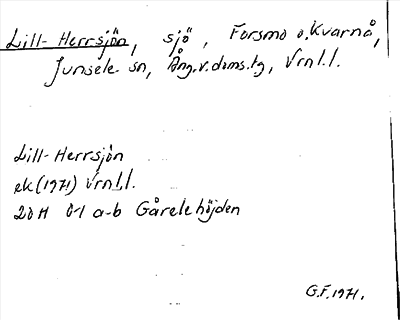 Lill-Herrsjön, sjö, Forsmo o. Kvarnå,
Junsele sn, Ång.v.doms.tg, Vrnl.l.
Lill-Herrsjön
ek (1971) Vrnl.l.
20H 01 a-b Gårelehöjden
G.F. 1971.